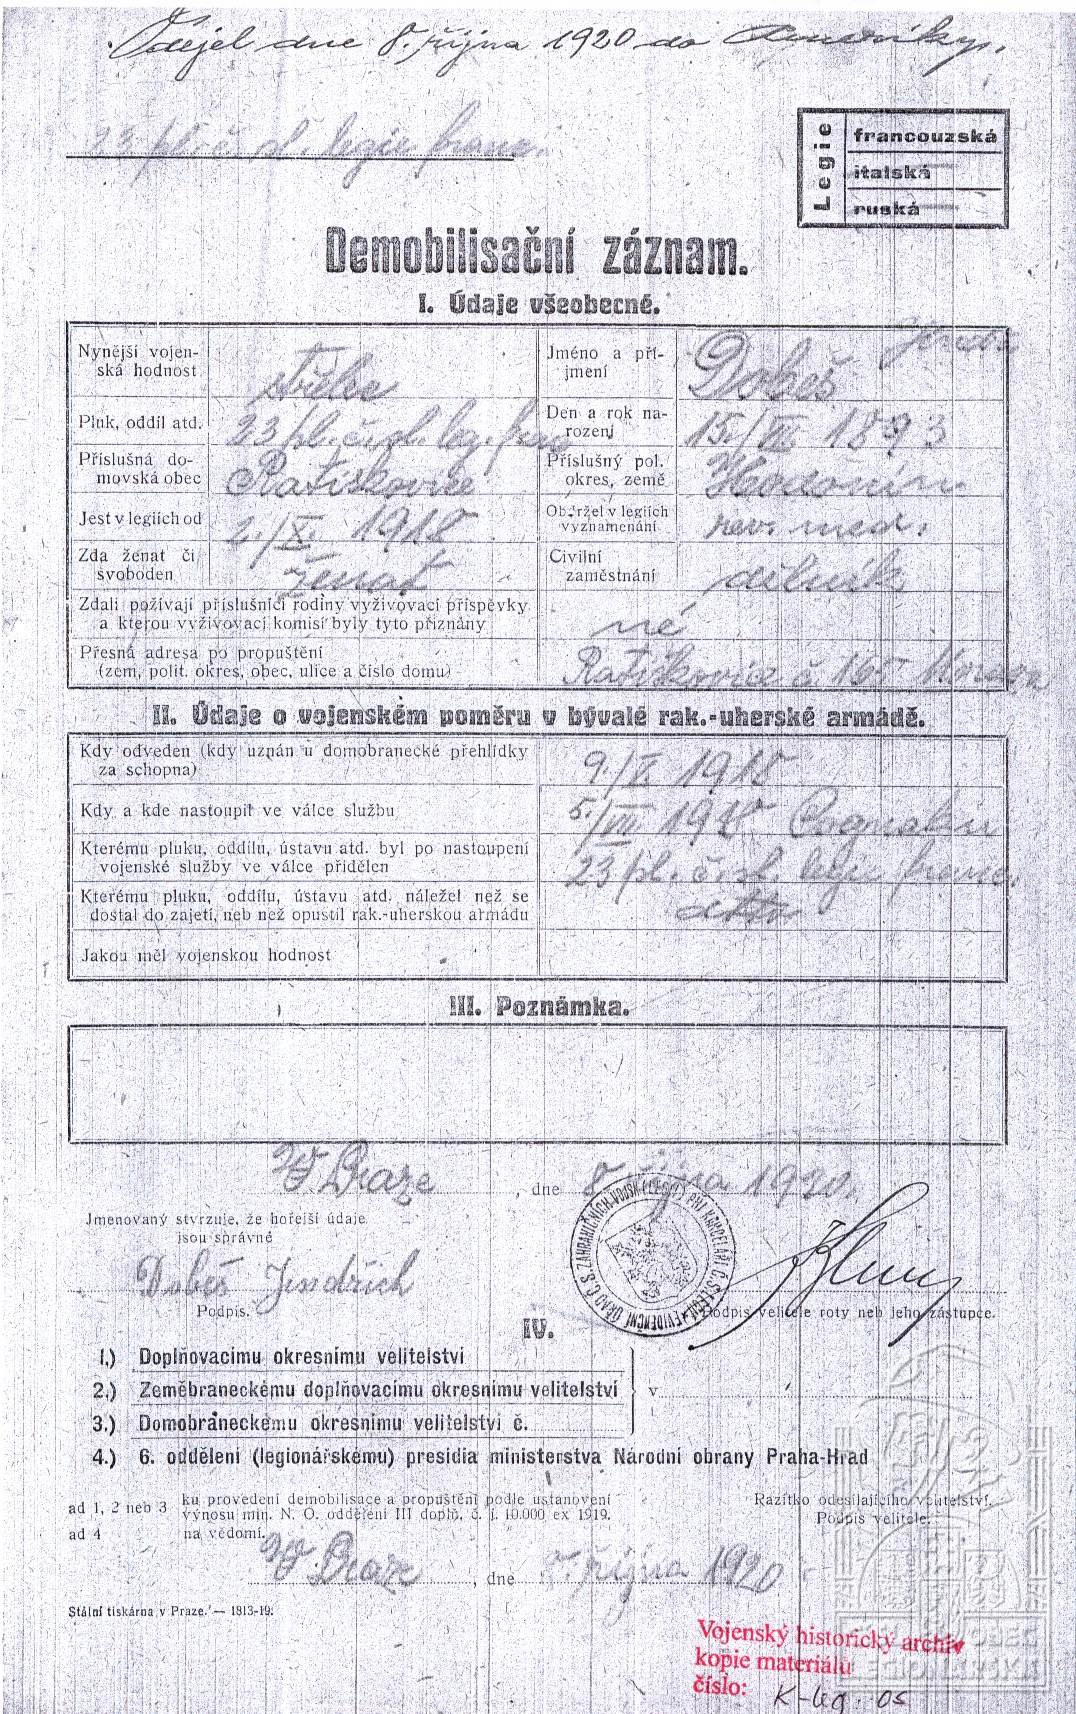 Odejel dne 8. října 1920 do Ameriky.
23 pl. č. sl. legie franc.
Legie
francouzská
italská
ruská
Demobilisační záznam.
I. Údaje všeobecné.
Nynější vojen-
ská hodnost
střelec
Jméno a pří-
jmení
Dobeš Jindř.
Pluk, oddíl atd.
23 pl. čsl. leg. franc
Den a rok na-
rození
15./VII. 1893
Příslušná do-
movská obec
Ratiškovice
Příslušný pol.
okres, země
Hodonín
Jest v legiích od
2./X. 1918
Obdržel v legiích
vyznamenání
rev. med.
Zda ženat či
svoboden
ženat
Civilní
zaměstnání
dělník
Zdali požívají příslušníci rodiny vyživovací příspěvky
a kterou vyživovací komisí byly tyto přiznány
né
Přesná adresa po propuštění
(zem, polit. okres, obec, ulice a číslo domu)
Ratiškovice č 165 Morava
II. Údaje o vojenském poměru v bývalé rak.-uherské armádě.
Kdy odveden (kdy uznán u domobranecké přehlídky
za schopna)
9./V. 1918
Kdy a kde nastoupil ve válce službu
5./VII 1918 Cognaku
Kterému pluku, oddílu, ústavu atd. byl po nastoupení
vojenské služby ve válce přidělen
23 pl. č. sl. legie franc.
Kterému pluku, oddílu, ústavu atd. náležel než se
dostal do zajetí, neb než opustil rak.-uherskou armádu
detto
Jakou měl vojenskou hodnost
III. Poznámka.
V Praze, dne 8 října 1920.
Jmenovaný stvrzuje, že hořejší údaje
jsou správné
Dobeš Jindřich
Podpis.
EVIDENČNÍ ÚŘAD Č. S. ZAHRANIČNÍCH VOJSK (LEGIÍ) PŘI KANCELÁŘI Č. S. LEGIÍ
Podpis velitele roty neb jeho zástupce.
IV.
1.) Doplňovacímu okresnímu velitelství
2.) Zeměbraneckému doplňovacímu okresnímu velitelství
v
3.) Domobraneckému okresnímu velitelství č.
4.) 6. oddělení (legionářskému) presidia ministerstva Národní obrany Praha-Hrad
ad 1, 2 neb 3 ku provedení demobilisace a propuštění podle ustanovení
výnosu min. N. O. oddělení III doplň. č. j. 10.000 ex 1919.
ad 4 na vědomí.
Razítko odesílajícího velitelství.
Podpis velitele.
V Praze, dne 8. října 1920
Státní tiskárna v Praze. — 1813-19.
Vojenský historický archiv
kopie materiálu
číslo: K-leg. os
OBEC
LEGIONÁŘSKÁ